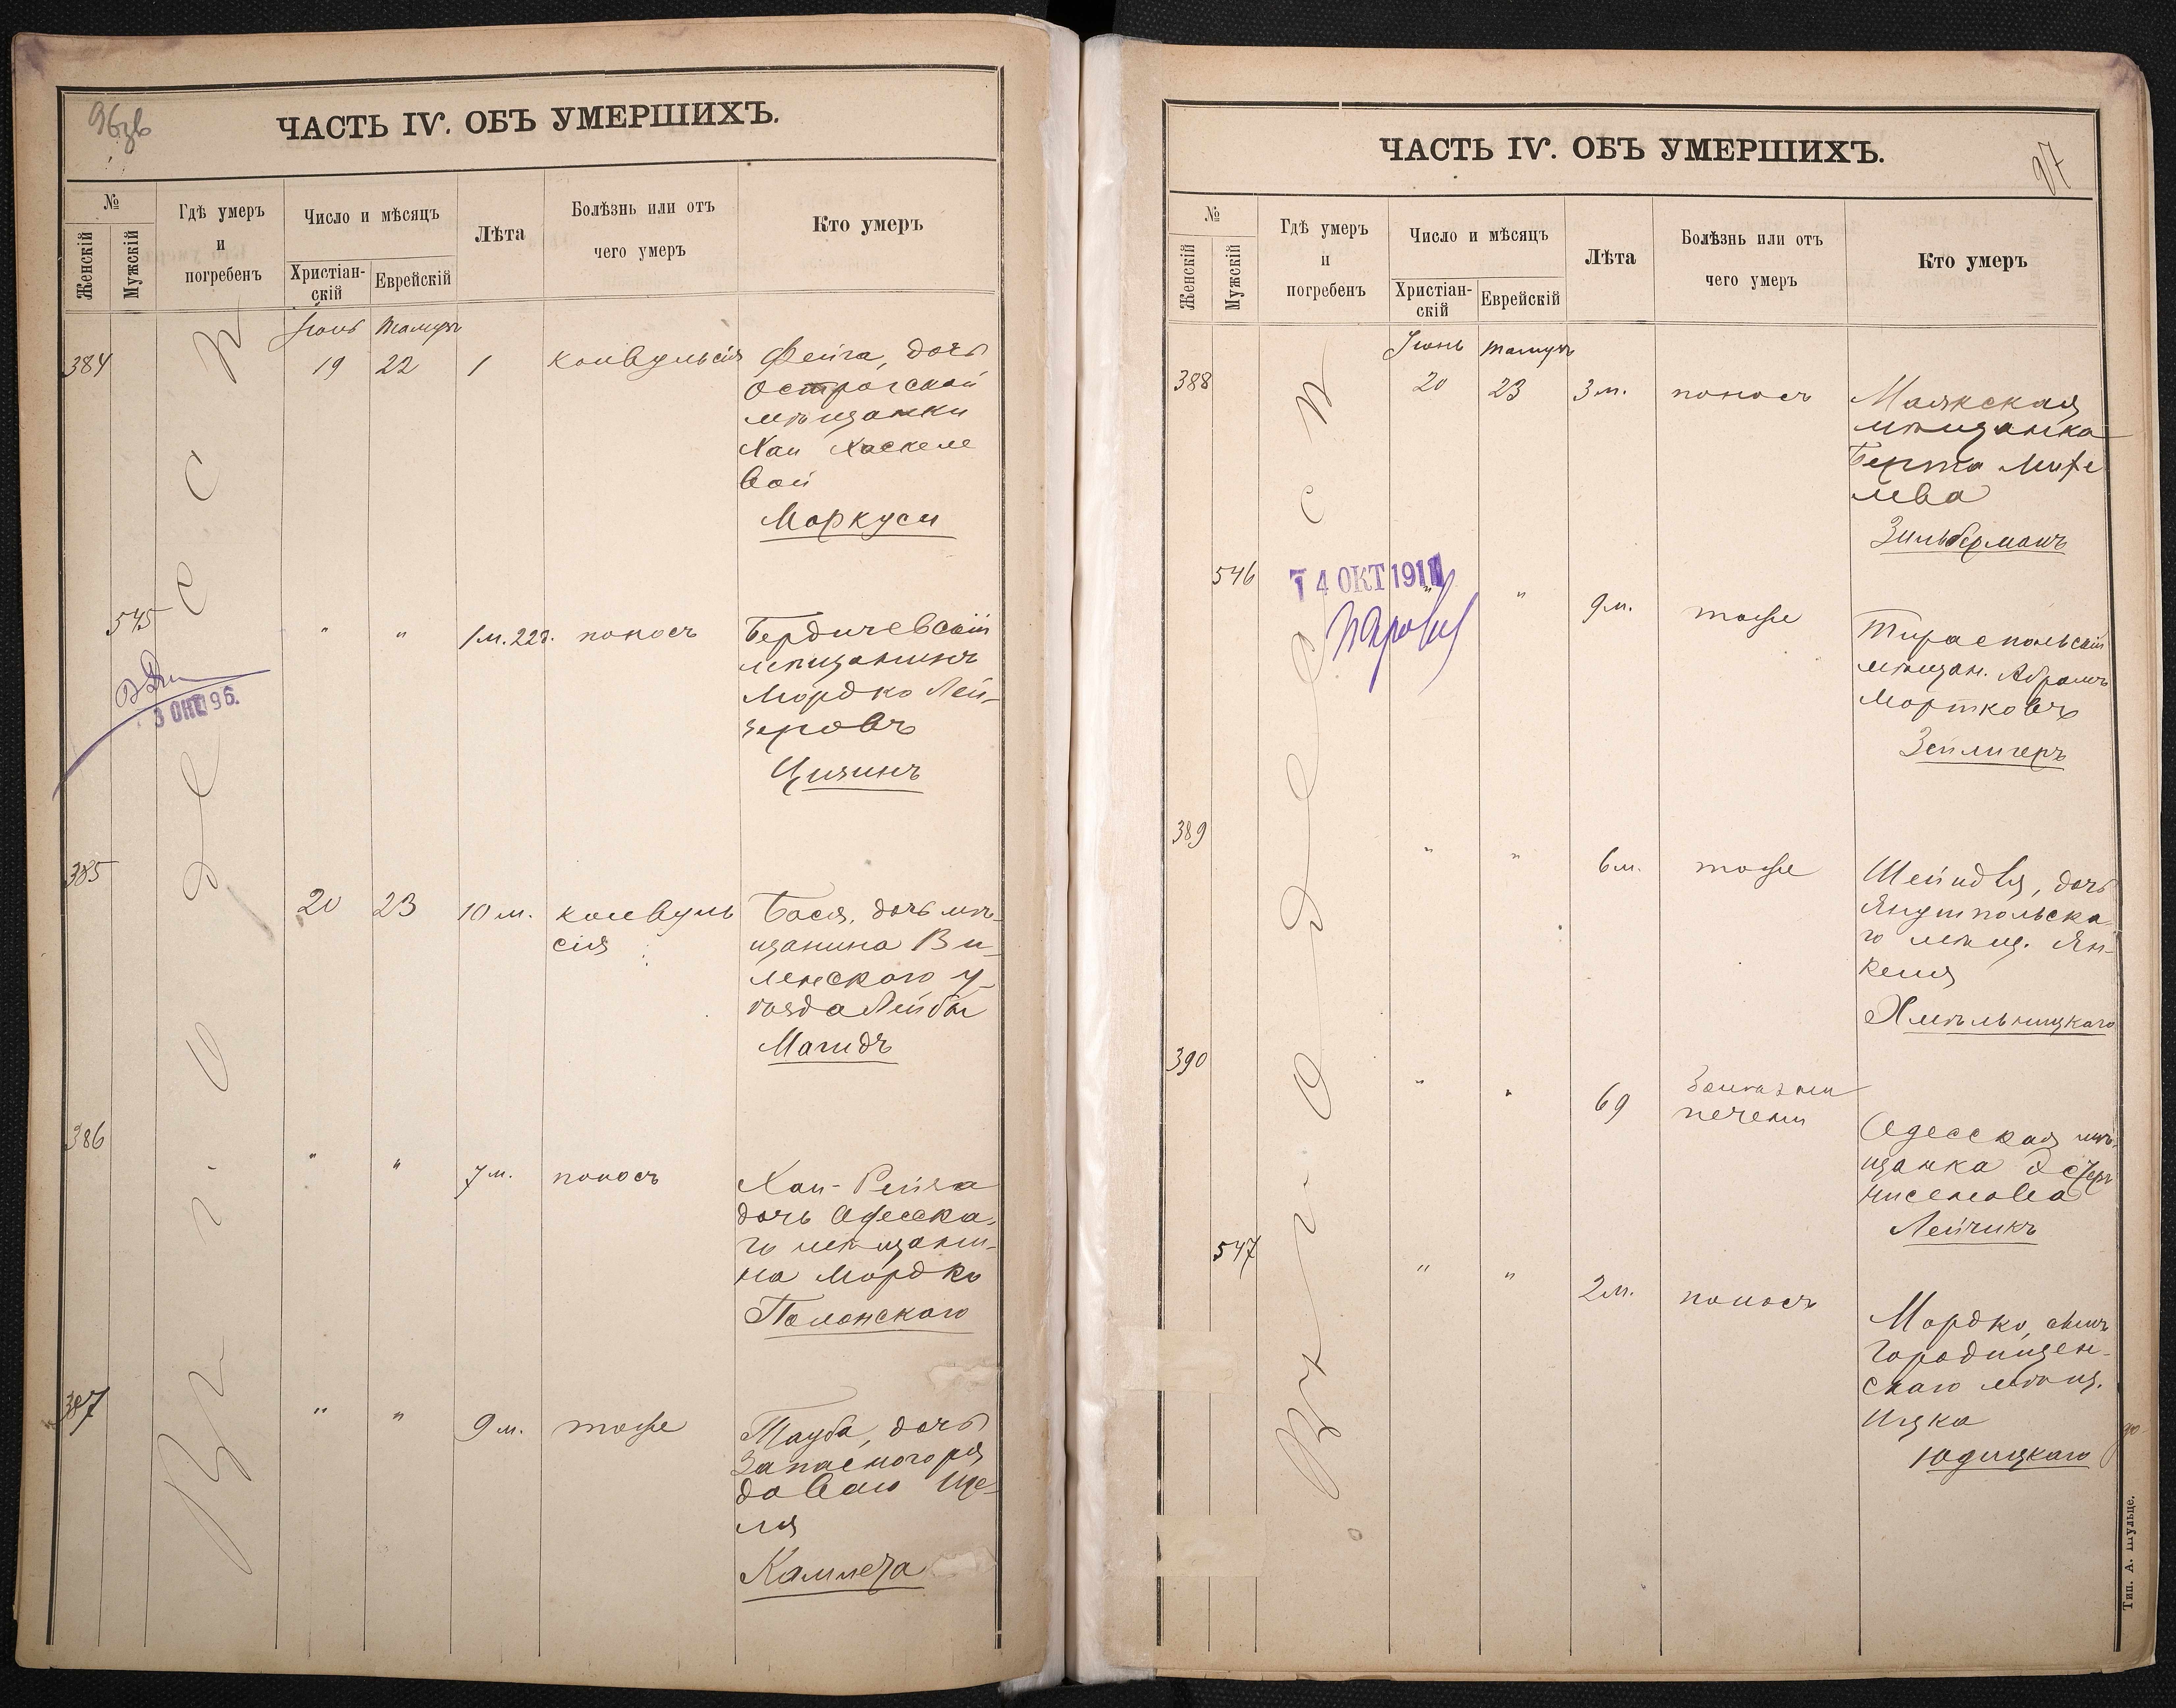 96 зв
ЧАСТЬ IV. ОБЪ УМЕРШИХЪ.
№
Женскій
Мужскій
Гдѣ умеръ
и
погребенъ
Число и мѣсяцъ
Христіан-
скій
Еврейскій
Лѣта
Болѣзнь или отъ
чего умеръ
Кто умеръ
Въ г. Одессѣ
Іюнь Тамузъ
384 19 22 1 конвульсія Фейга, дочь
Острогской
мѣщанки
Хаи Хаскеле
вой
Маркуси
545 " " 1 м. 22 д. поносъ Бердичевскій
мѣщанинъ
Мордко Лей-
зеровъ
3 ОКТ 96.
385 20 23 10 м. конвуль
сія
Бася, дочь мѣ-
щанина Ви-
ленскаго у-
ѣзда Лейбы
Магидъ
386 " " 7 м. поносъ Хаи-Рейза
дочь Одесска-
го мѣщани-
на Мордко
Полонскаго
387 " " 9 м. тоже Тауба, дочь
Запасного ря
доваго
Камлета
97
ЧАСТЬ IV. ОБЪ УМЕРШИХЪ.
№
Женскій
Мужскій
Гдѣ умеръ
и
погребенъ
Число и мѣсяцъ
Христіан-
скій
Еврейскій
Лѣта
Болѣзнь или отъ
чего умеръ
Кто умеръ
Въ г. Одессѣ
Іюнь Тамузъ
388 20 23 3 м. поносъ Маякская
мѣщанка
Берта
Зильберманъ
546 " " 9 м. тоже Тираспольскій
мѣщан. Абрамъ
Мортковъ
Зейлигеръ
14 ОКТ 1911
389 " " 6 м. тоже Шейндля, дочь
Янушпольска
го мѣщ. Ян-
келя
Хмѣльницкаго
390 " " 69 Болѣзни
печени
Одесская мѣ-
щанка Эстеръ
Нисенова
Лейчикъ
547 " " 2 м. поносъ Мордко, сынъ
Городищен-
скаго мѣщ.
Ицка
Юдицкаго
Тип. А. Шульце.